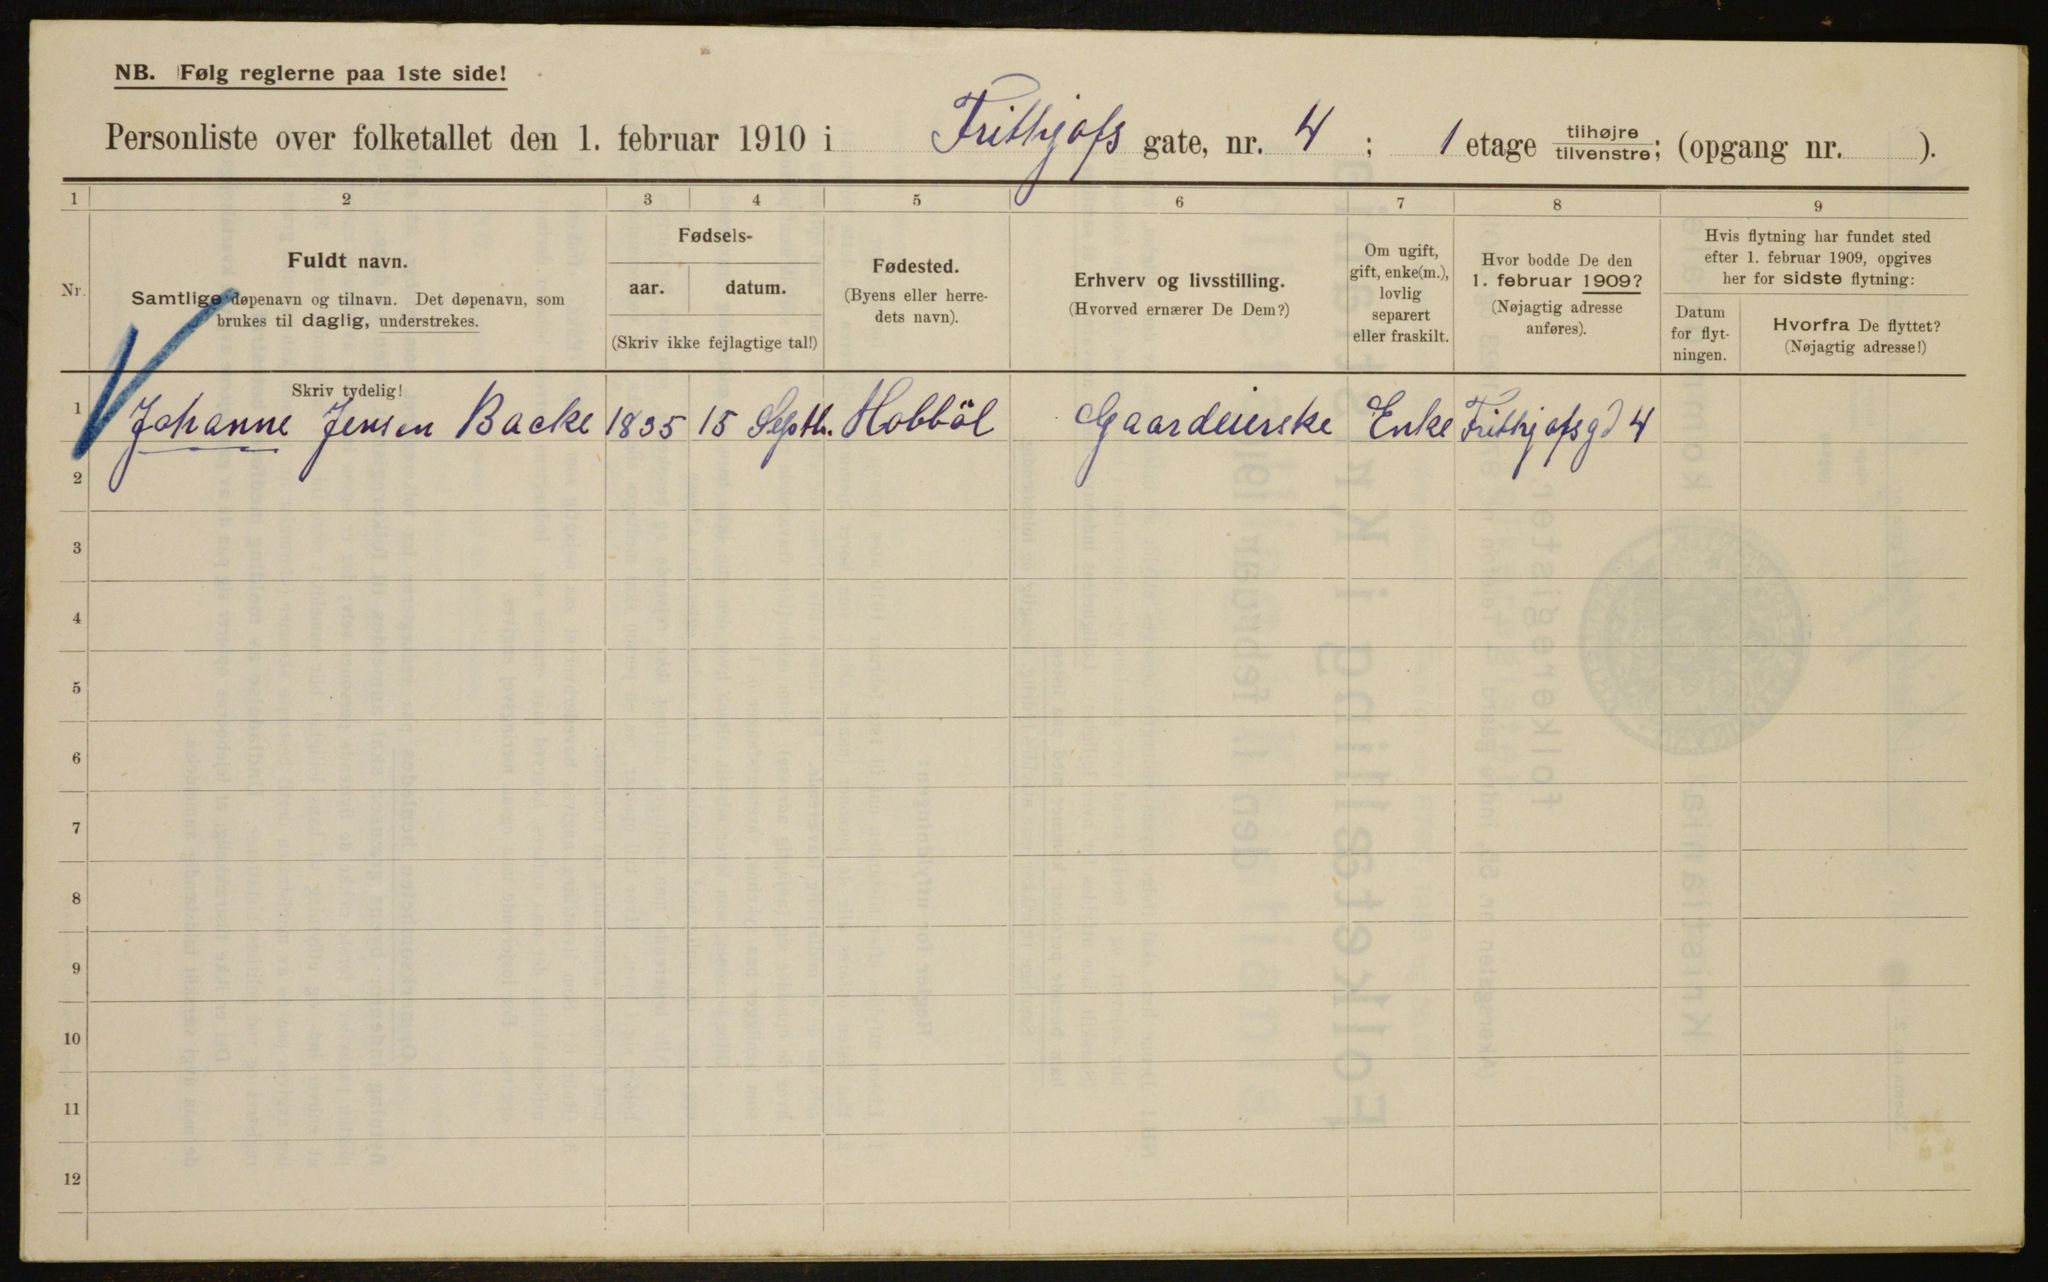 NB. Følg reglerne paa 1ste side!
Personliste over folketallet den 1. februar 1910 i Frithjofs gate, nr. 4 ; 1 etage tilhøjre/tilvenstre; (opgang nr. ).
1 2 3 4 5 6 7 8 9
Nr.
Fuldt navn.
Samtlige døpenavn og tilnavn. Det døpenavn, som
brukes til daglig, understrekes.
Fødsels-
aar. datum.
(Skriv ikke fejlagtige tal!)
Fødested.
(Byens eller herre-
dets navn).
Erhverv og livsstilling.
(Hvorved ernærer De Dem?)
Om ugift,
gift, enke(m.),
lovlig
separert
eller fraskilt.
Hvor bodde De den
1. februar 1909?
(Nøjagtig adresse
anføres).
Hvis flytning har fundet sted
efter 1. februar 1909, opgives
her for sidste flytning:
Datum
for flyt-
ningen.
Hvorfra De flyttet?
(Nøjagtig adresse!)
Skriv tydelig!
1 Johanne Jensen Backe 1835 15 Septb. Hobböl Gaardeierske Enke Frithjofsgd 4
2
3
4
5
6
7
8
9
10
11
12